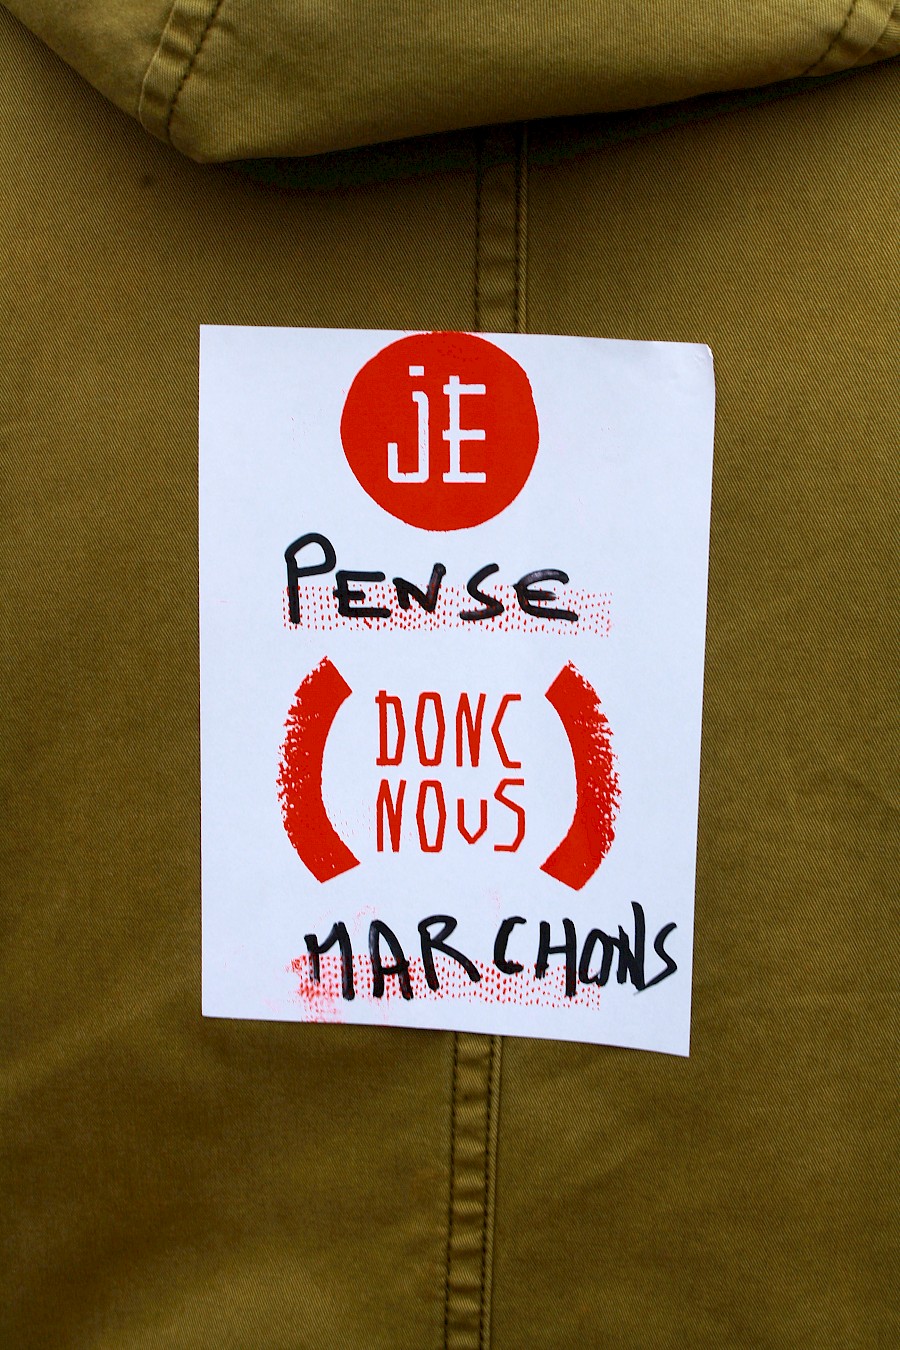 jE
PENSE
DONC
NOuS
MARCHONS